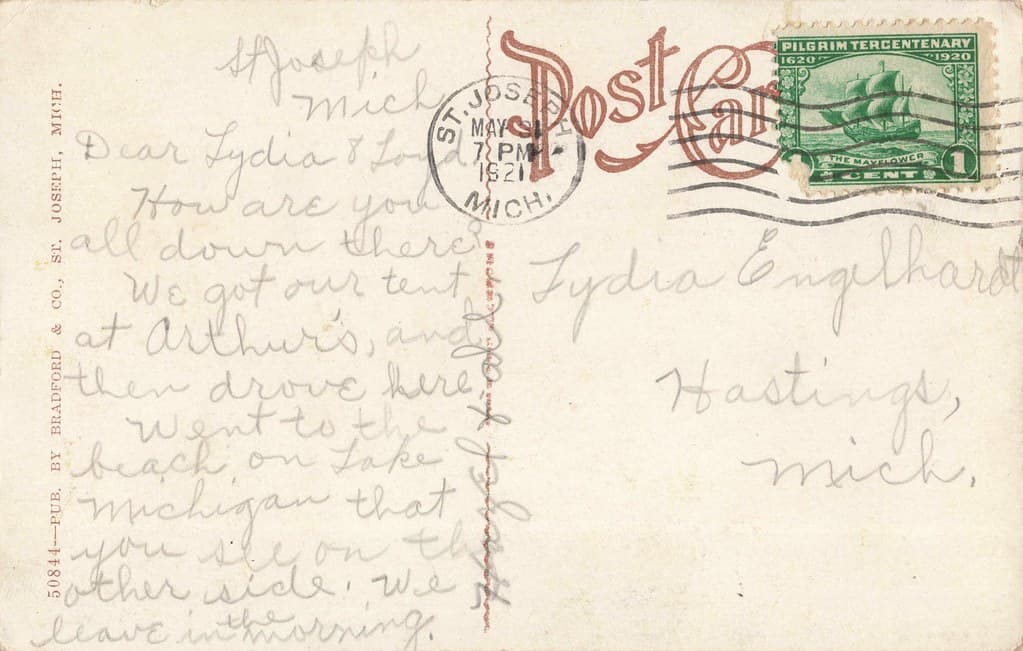 St Joseph
Mich
Dear Lydia & Loyd
How are you
all down there?
We got our tent
at Arthur's, and
then drove here.
Went to the
beach on Lake
Michigan that
you see on the
other side. We
leave in the morning.
Post Car
ST. JOSEPH
MAY 31
7 PM
1921
MICH.
PILGRIM TERCENTENARY
1620 1920
THE MAYFLOWER
CENT 1
Lydia Engelhardt
Hastings,
Mich.
50844—PUB. BY BRADFORD & CO., ST. JOSEPH, MICH.